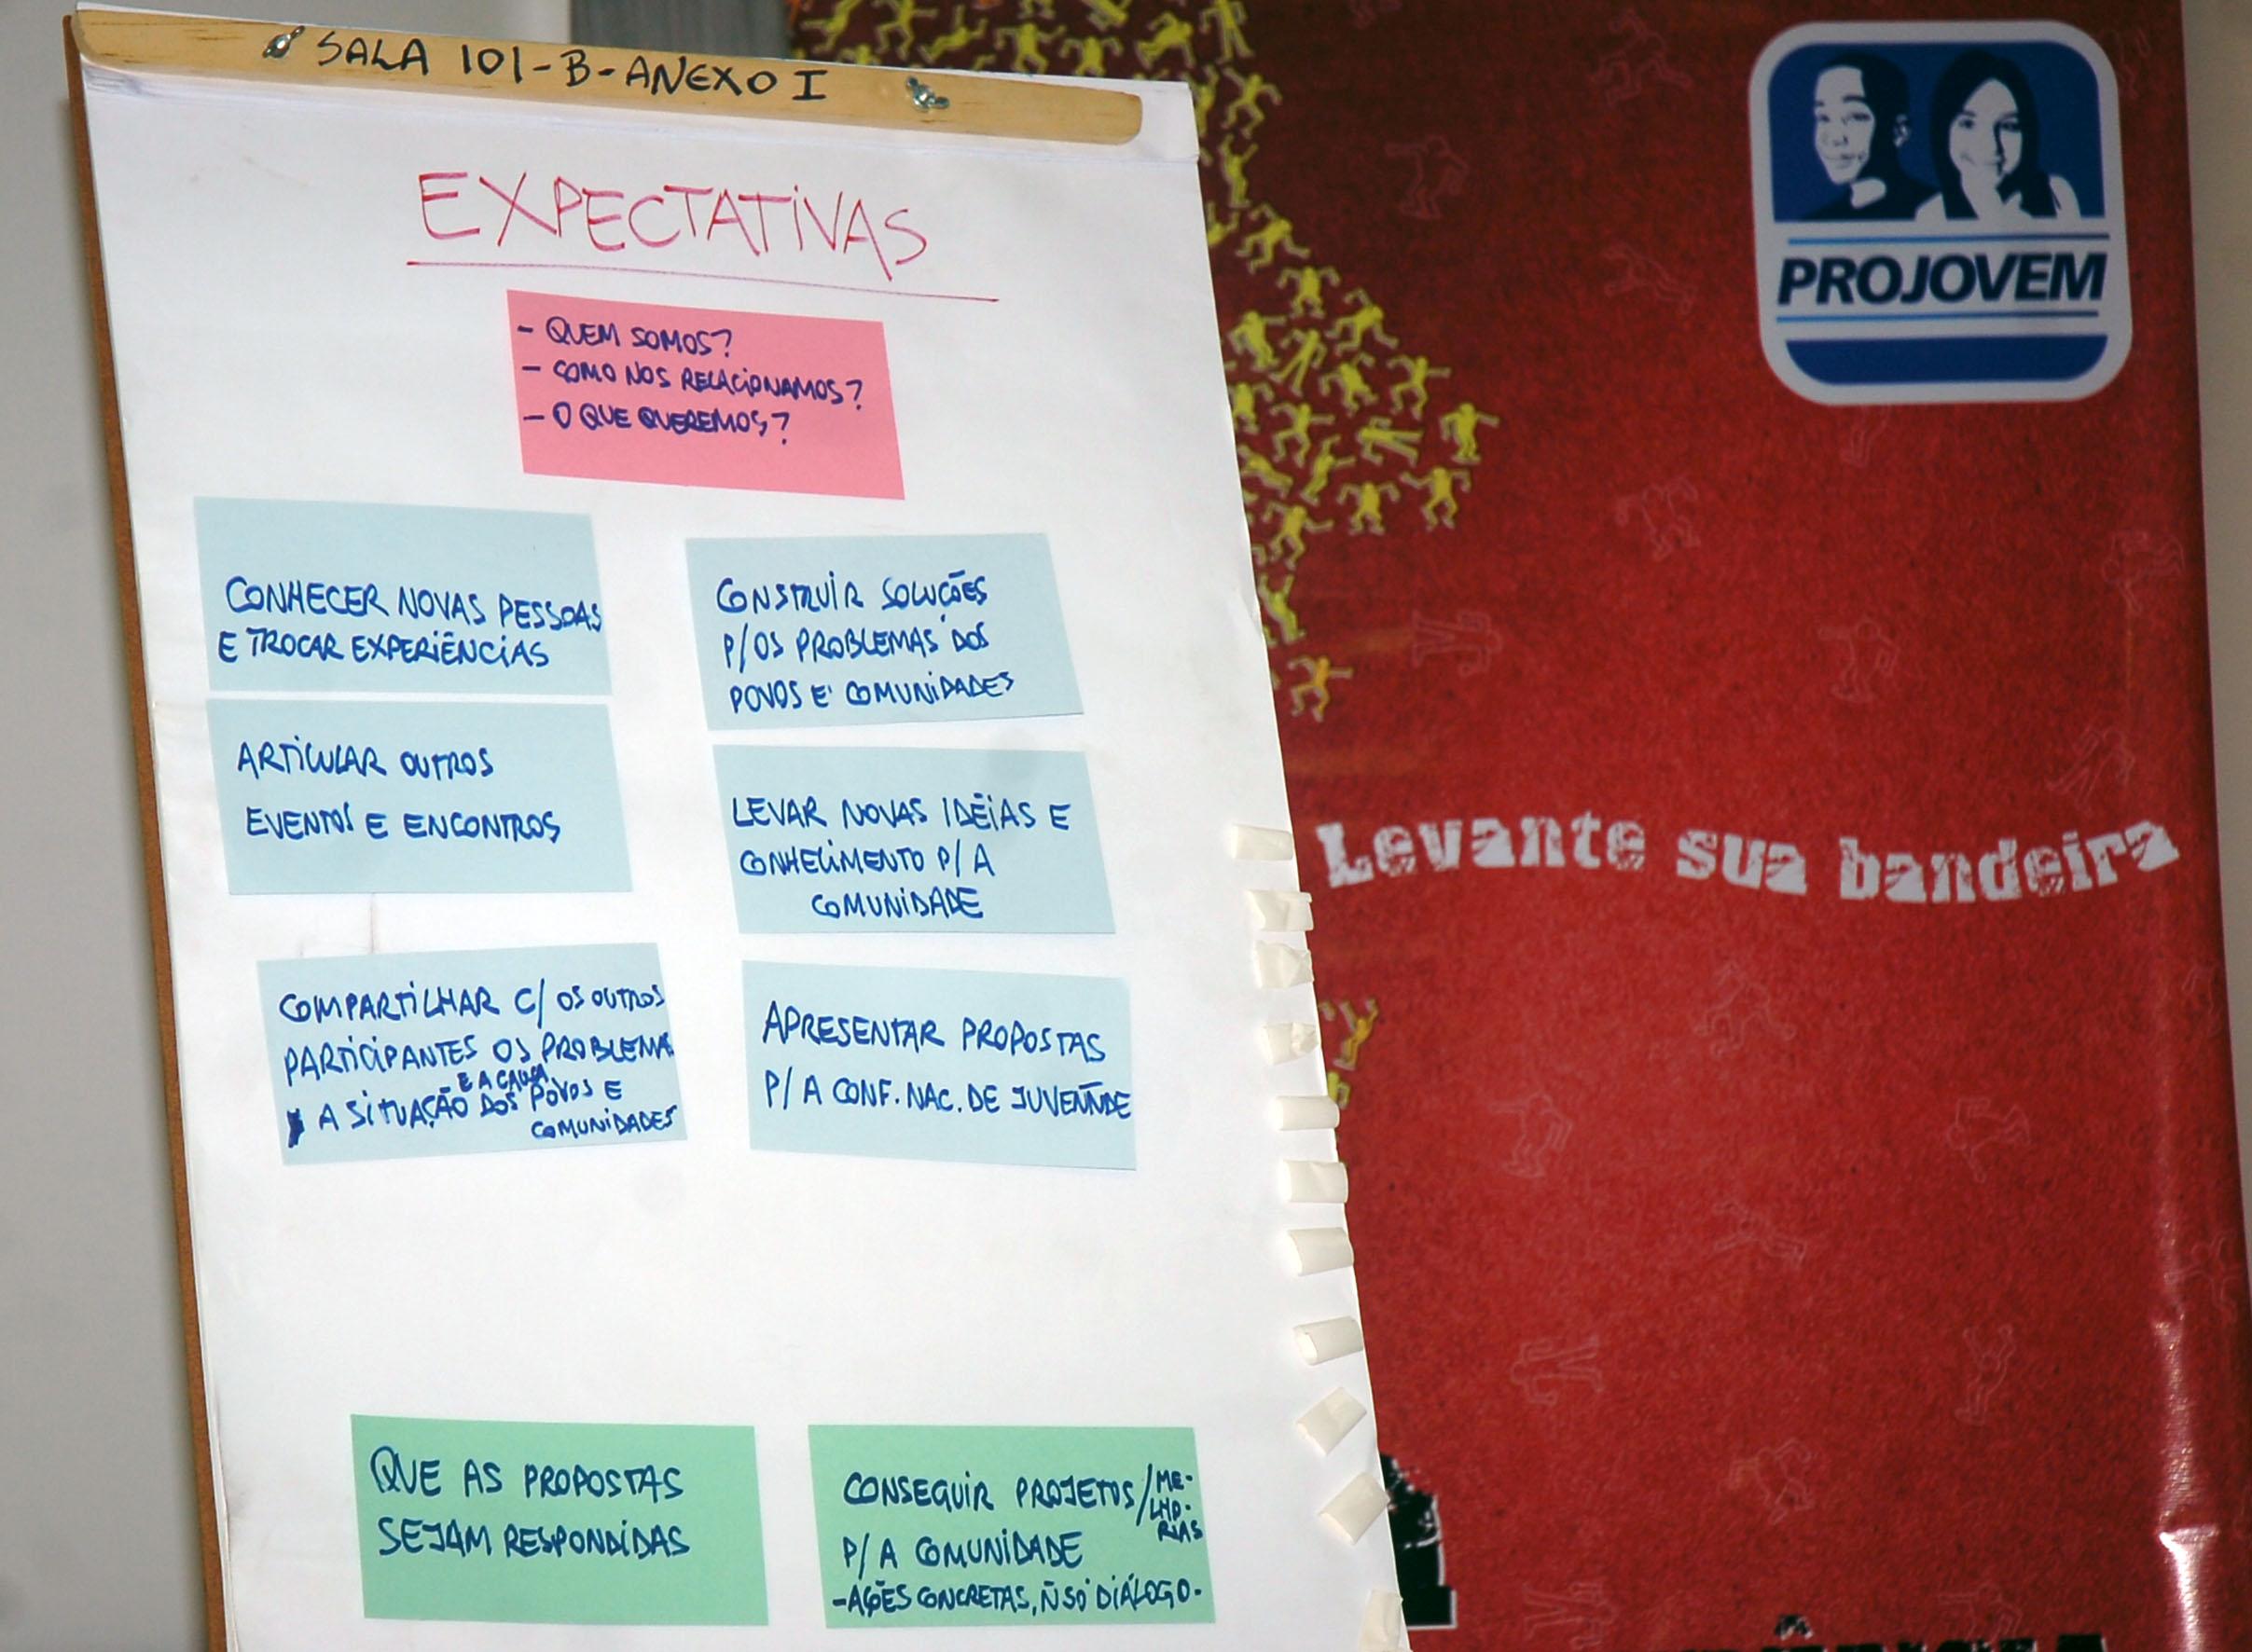 SALA 101-B-ANEXO I
EXPECTATIVAS
- QUEM SOMOS?
- COMO NOS RELACIONAMOS?
- O QUE QUEREMOS?
CONHECER NOVAS PESSOAS
E TROCAR EXPERIÊNCIAS
CONSTRUIR SOLUÇÕES
P/OS PROBLEMAS DOS
POVOS E COMUNIDADES
ARTICULAR OUTROS
EVENTOS E ENCONTROS
LEVAR NOVAS IDÉIAS E
CONHECIMENTO P/ A
COMUNIDADE
COMPARTILHAR C/ OS OUTROS
PARTICIPANTES OS PROBLEMA
E A CAUSA
A SITUAÇÃO DOS POVOS E
COMUNIDADES
APRESENTAR PROPOSTAS
P/ A CONF. NAC. DE JUVENTUDE
QUE AS PROPOSTAS
SEJAM RESPONDIDAS
CONSEGUIR PROJETOS/ME-
LHO-
RIAS
P/ A COMUNIDADE
-AÇÕES CONCRETAS, Ñ SÓ DIÁLOGO-
PROJOVEM
Levante sua bandeira